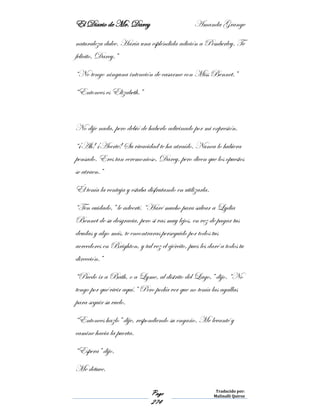 El Diario de Mr. Darcy Amanda Grange
naturaleza dulce. Haría una espléndida adición a Pemberley. Te
felicito, Darcy."
"No tengo ninguna intención de casarme con Miss Bennet."
"Entonces es Elizabeth."
No dije nada, pero debió de haberlo adivinado por mi expresión.
"¡Ah! ¡Acerté! Su vivacidad te ha atraído. Nunca lo hubiera
pensado. Eres tan ceremonioso, Darcy, pero dicen que los opuestos
se atraen."
Él tenía la ventaja y estaba disfrutando en utilizarla.
"Ten cuidado," le advertí. "Haré mucho para salvar a Lydia
Bennet de su desgracia, pero si vas muy lejos, en vez de pagar tus
deudas y algo más, te encontraras perseguido por todos tus
acreedores en Brighton, y tal vez el ejército, pues les daré a todos tu
dirección."
"Puedo ir a Bath, o a Lyme, al distrito del Lago," dijo, "No
tengo por qué vivir aquí." Pero podía ver que no tenía las agallas
para seguir su vuelo.
"Entonces hazlo" dije, respondiendo su engaño. Me levanté y
camine hacia la puerta.
"Espera" dijo.
Me detuve.
Page
274
Traducido por:
Malinalli Quiroz